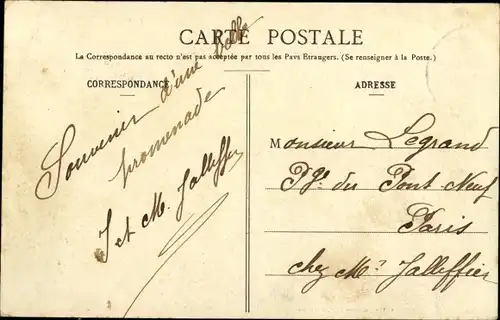 CARTE POSTALE
La Correspondance au recto n'est pas acceptée par tous les Pays Etrangers. (Se renseigner à la Poste.)
CORRESPONDANCE
Souvenir d'une belle
promenade
J et M. Jalleffier
ADRESSE
Monsieur Legrand
Pge du Pont Neuf
Paris
chez Mr Jalleffier